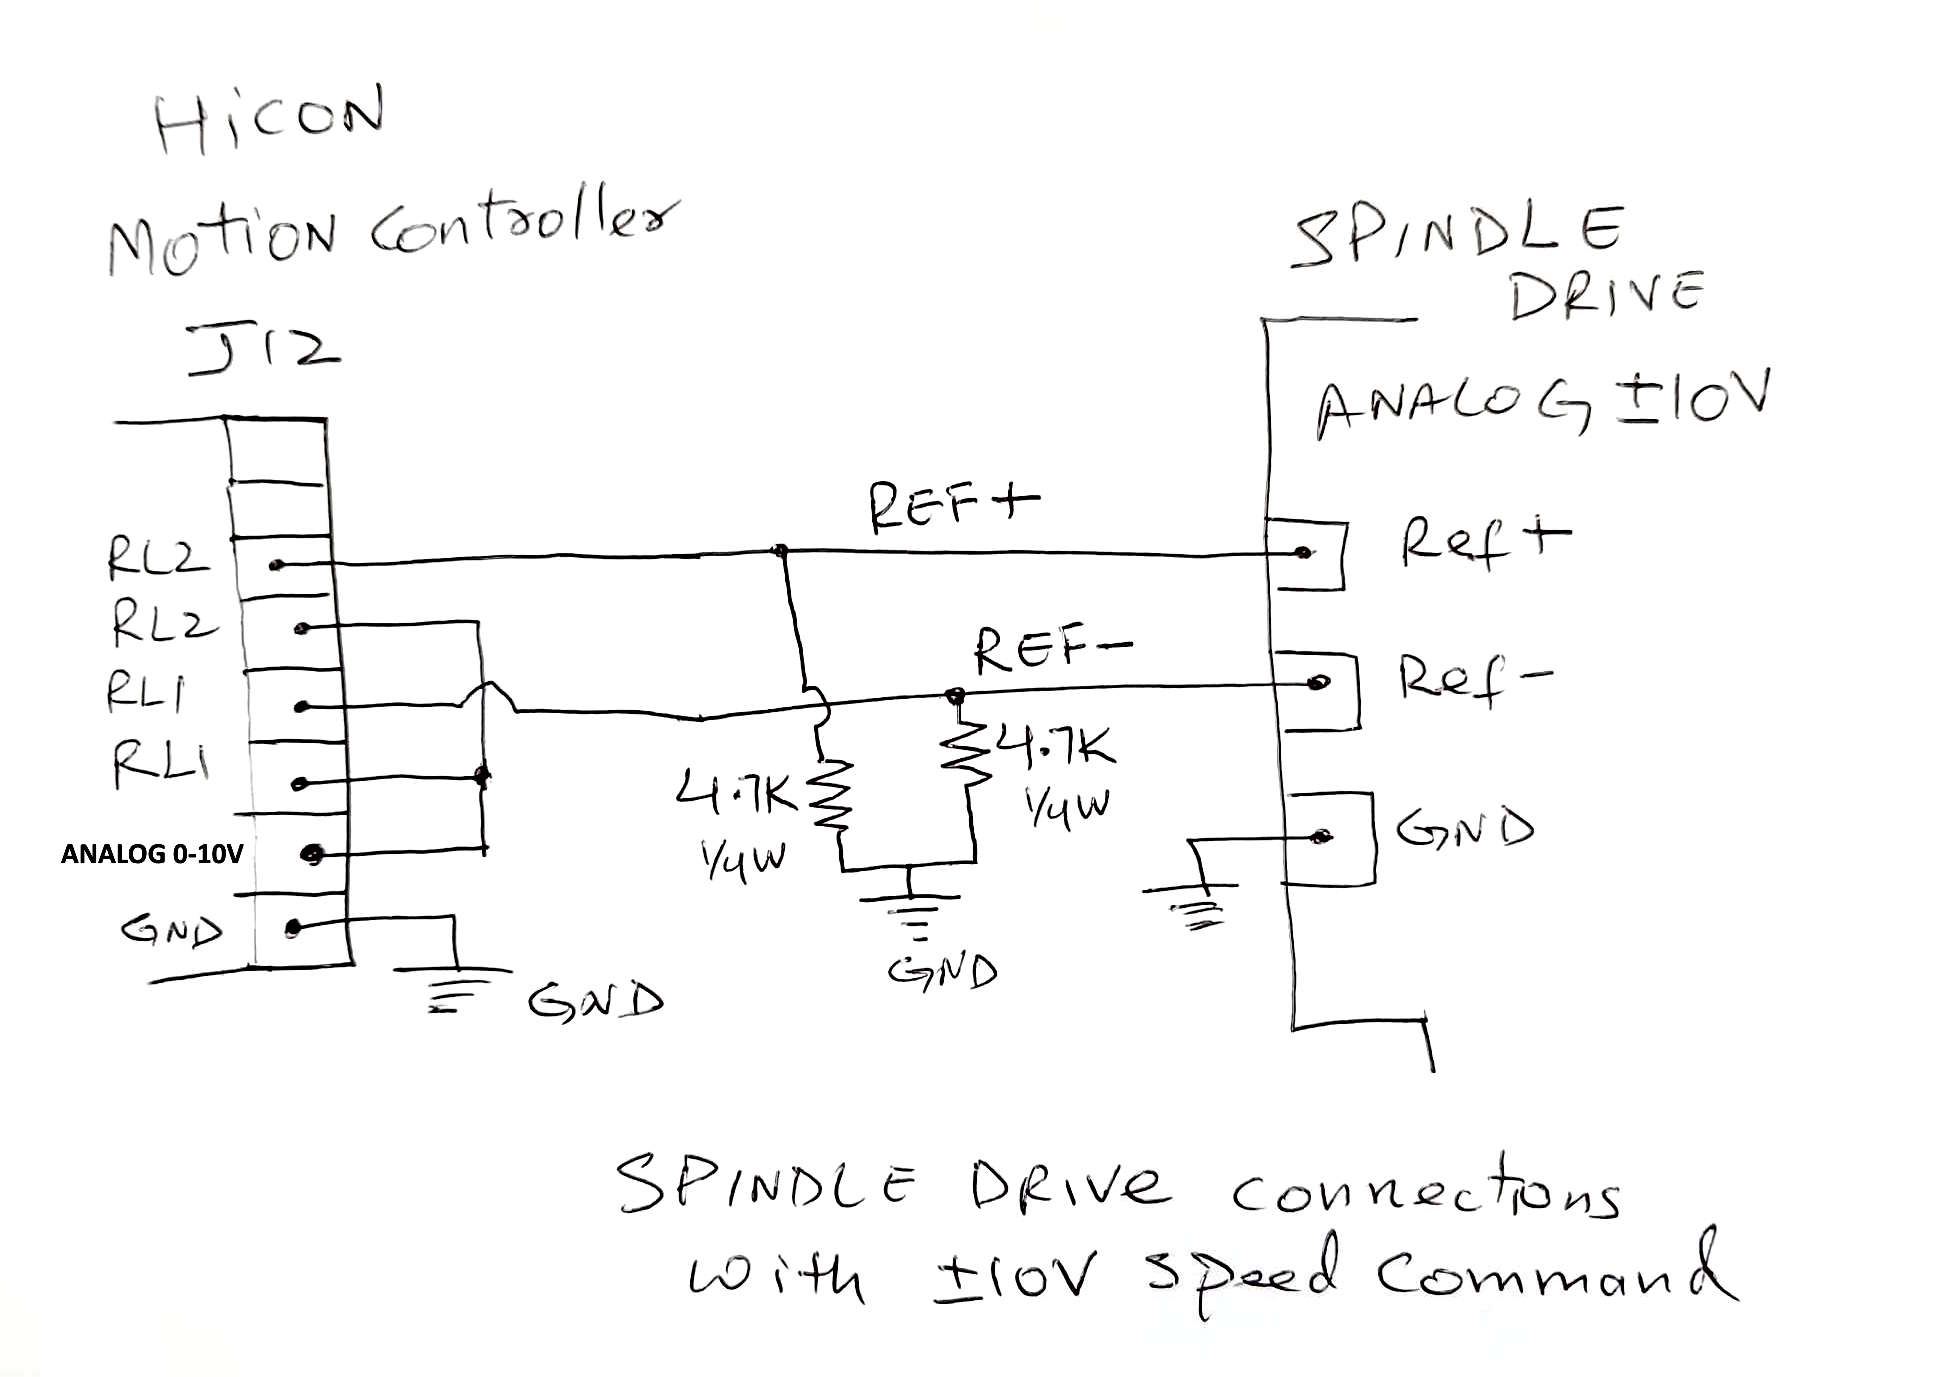 HiCON
MOTION Controller
J12
SPINDLE
DRIVE
ANALOG ±10V
REF+
Ref+
RL2
RL2
REF-
Ref-
RL1
RL1
4.7K
1/4W
4.7K
1/4W
GND
ANALOG 0-10V
GND
GND
GND
SPINDLE DRIVE connections
with ±10V speed command